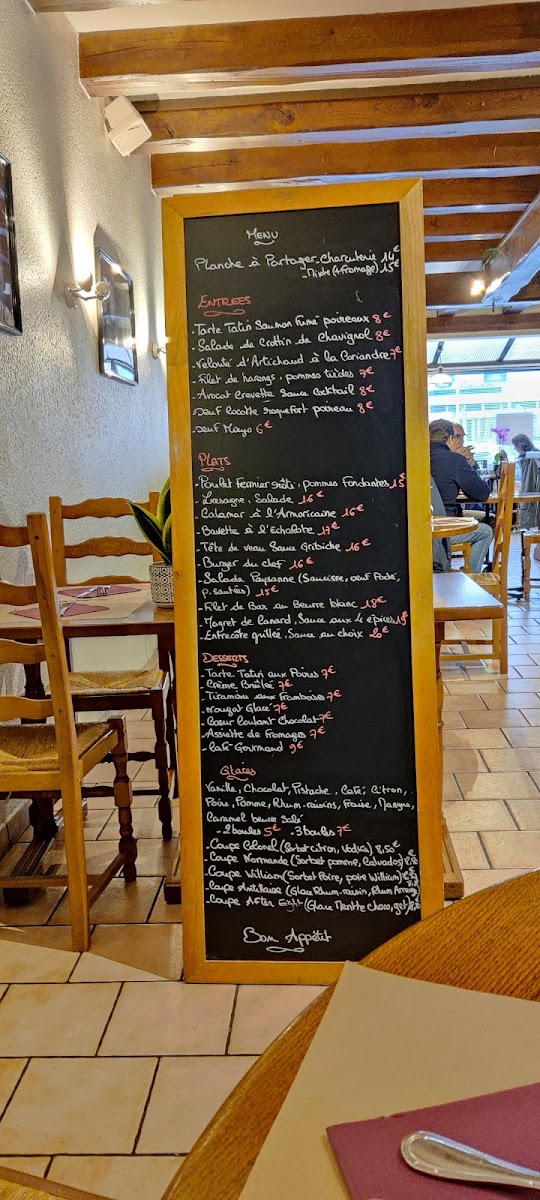 MENU
Planche à Partager. Charcuterie 14€
- Mixte (+fromage) 15€
ENTREES
- Tarte Tatin Saumon Fumé poireaux 8€
- Salade de Crottin de Chavignol 8€
- Velouté d'Artichaud à la Coriandre 7€
- Filet de harengs, pommes tièdes 7€
- Avocat Crevette Sauce Cocktail 8€
- Oeuf Cocotte roquefort poireau 8€
- Oeuf Mayo 6€
PLATS
- Poulet Fermier rôti, pommes Fondantes 15€
- Lasagne, Salade 16€
- Calamar à l'Armoricaine 16€
- Bavette à l'Echalote 17€
- Tête de veau Sauce Gribiche 16€
- Burger du chef 16€
- Salade Paysanne (Saucisse, oeuf Poché,
p. sautées) 15€
- Filet de Bar au Beurre blanc 18€
- Magret de Canard, Sauce aux 4 épices 19€
- Entrecôte grillée, Sauce au choix 20€
DESSERTS
- Tarte Tatin aux Poires 7€
- Crème Brûlée 7€
- Tiramisu aux Framboises 7€
- Nougat Glacé 7€
- Coeur Coulant Chocolat 7€
- Assiette de Fromages 7€
- Café Gourmand 9€
Glaces
Vanille, Chocolat, Pistache, Café, Citron,
Poire, Pomme, Rhum-raisins, Fraise, Mangue,
Caramel beurre Salé
- 2 boules 5€ - 3 boules 7€
- Coupe Colonel (Sorbet citron, Vodka) 8,50€
- Coupe Normande (Sorbet pomme, Calvados) 8,50
- Coupe William (Sorbet Poire, poire William)
- Coupe Antillaise (Glace Rhum-raisin, Rhum
- Coupe After Eight (Glace Menthe Choco, get)
Bon Appétit